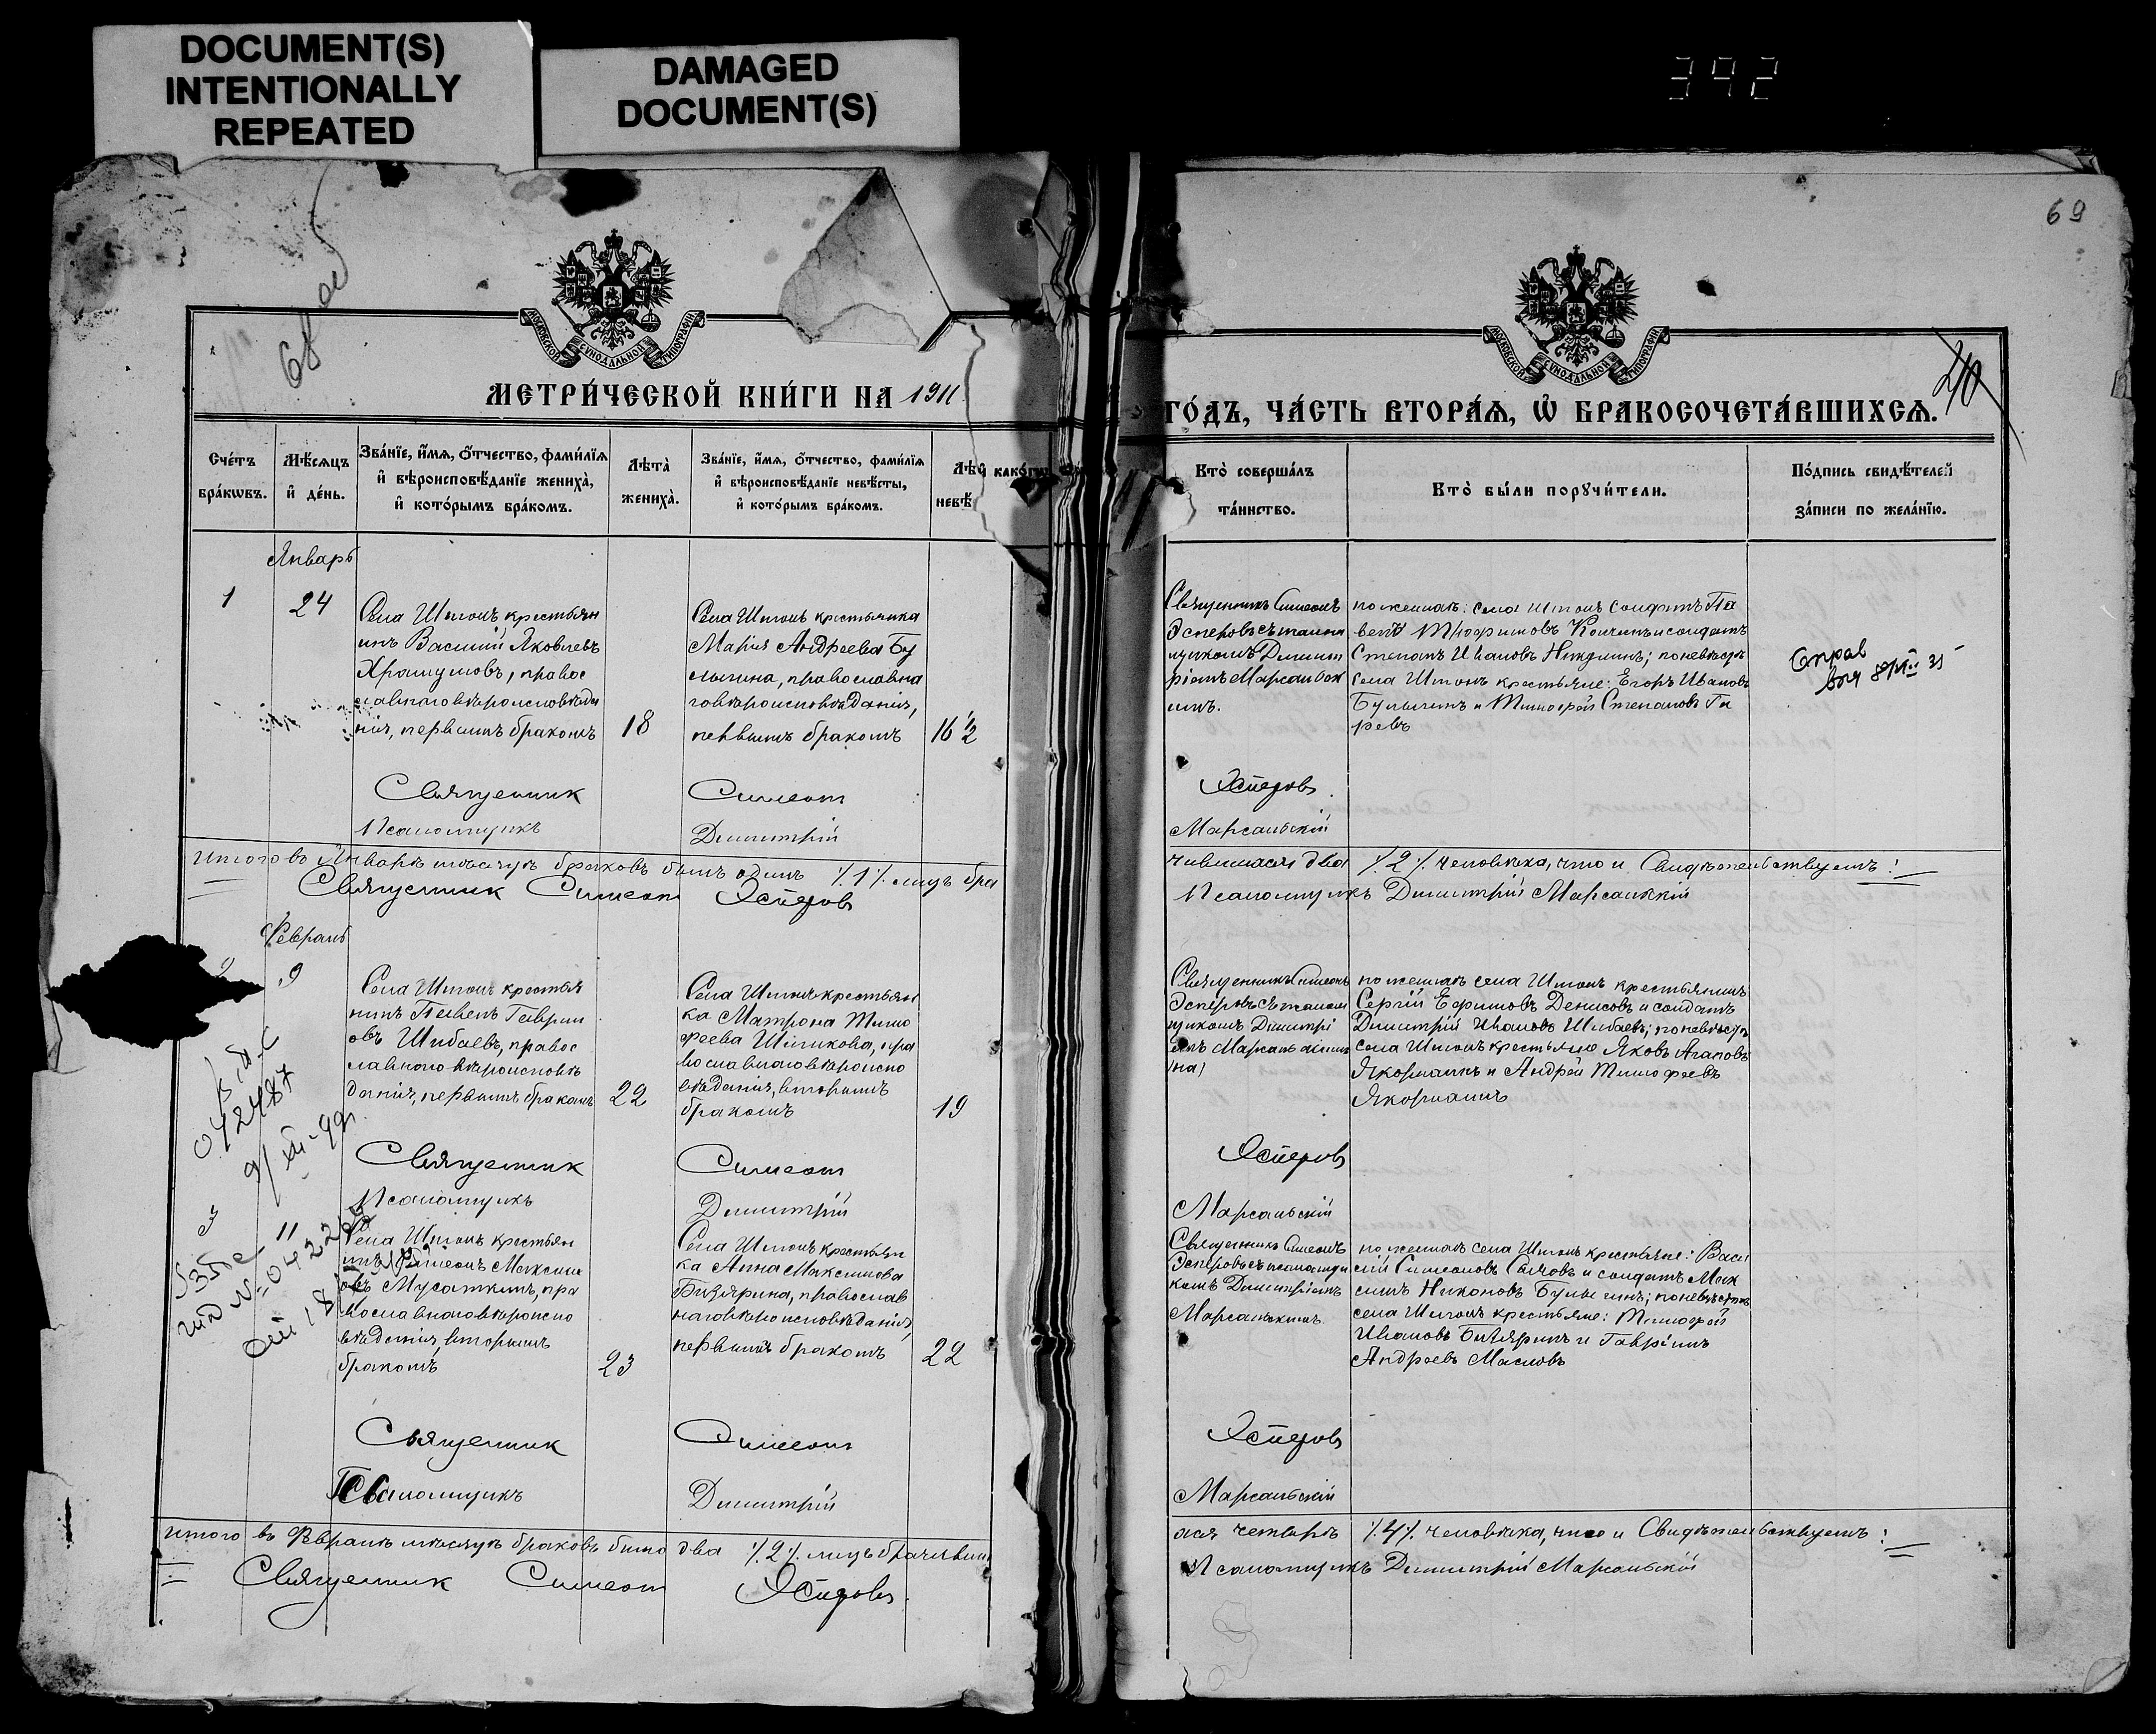 DOCUMENT(S)
INTENTIONALLY
REPEATED
DAMAGED
DOCUMENT(S)
392
69
68
210
МОСКОВСКОЙ СѴНОДАЛЬНОЙ ТИПОГРАФІИ
МОСКОВСКОЙ СѴНОДАЛЬНОЙ ТИПОГРАФІИ
МЕТРИ́ЧЕСКОЙ КНИ́ГИ НА 1911
ГО́ДЪ, ЧА́СТЬ ВТОРА́Ѧ, Ѽ БРАКОСОЧЕТА́ВШИХСѦ.
Сче́тъ
бра́кѡвъ.
Мѣ́сѧцъ
и҆ де́нь.
Зва́нїе, и҆́мѧ, ѻ҆́тчество, фами́лїѧ
и҆ вѣроисповѣ́данїе жениха̀,
и҆ кото́рымъ бра́комъ.
Лѣта̀
жениха̀.
Зва́нїе, и҆́мѧ, ѻ҆́тчество, фами́лїѧ
и҆ вѣроисповѣ́данїе невѣ́сты,
и҆ кото́рымъ бра́комъ.
Лѣ
невѣ́
Кто̀ соверша́лъ
та́инство.
Кто̀ бы́ли порꙋчи́тели.
По́дпись свидѣ́телей
за́писи по жела́нїю.
Январь
1
24
Села Штонъ крестьян
инъ Василій Яковлевъ
Храмушовъ, правос
лавнаго вѣроисповѣда
нія, первымъ бракомъ
18
Села Штонъ крестьянка
Марія Андреева Бу
лыгина, православна
го вѣроисповѣданія,
первымъ бракомъ
16 1/2
Священникъ Симеонъ
Эсперовъ съ псалом
щикомъ Димит
ріемъ Марсальск
имъ.
по женихѣ: села Штонъ солдатъ Па
велъ Трофимовъ Кончинъ и солдатъ
Степанъ Ивановъ Никулинъ; по невѣстѣ
села Штонъ крестьяне: Егоръ Ивановъ
Булыгинъ и Тимофей Степановъ Гу
ревъ
Священник
Симеон
Эсперовъ
Псаломщикъ
Димитрій
Марсальскій
Итого въ Январѣ мѣсяцѣ браковъ былъ одинъ %1% лицъ бра
чившихся два %2% человѣка, что и Свидѣтельствуемъ:
Священник Симеон Эсперовъ
Псаломщикъ Димитрій Марсальскій
Февраль
2
9
Села Штонъ крестья
нинъ Павелъ Гаврил
овъ Шибаевъ, правос
лавнаго вѣроисповѣ
данія, первымъ бракомъ
22
Села Штонъ крестьян
ка Матрона Тимо
феева Шишкова, пра
вославнаго вѣроиспо
вѣданія, вторымъ
бракомъ
19
Священникъ Симеонъ
Эсперовъ съ псалом
щикомъ Димитрі
емъ Марсальскимъ
по женихѣ села Штонъ крестьянинъ
Сергѣй Ефимовъ Денисовъ и солдатъ
Димитрій Ивановъ Шибаевъ; по невѣстѣ
села Штонъ крестьяне Яковъ Агаповъ
и Андрей Тимофеевъ
Священник
Симеон
Эсперовъ
Псаломщикъ
Димитрій
Марсальскій
3
11
Села Штонъ крестьян
инъ Симеонъ Максим
овъ Мусаткинъ, пра
вославнаго вѣроиспо
вѣданія, вторымъ
бракомъ
23
Села Штонъ крестьян
ка Анна Максимова
Бизярина, православ
наго вѣроисповѣданія,
первымъ бракомъ
22
Священникъ Симеонъ
Эсперовъ съ псаломщи
комъ Димитріемъ
Марсальскимъ
по женихѣ села Штонъ крестьяне: Васи
лій Симеоновъ и солдатъ Мак
симъ Никоновъ Булыгинъ; по невѣстѣ
села Штонъ крестьяне: Тимофей
Ивановъ Бизяринъ и Гавріилъ
Андреевъ Масловъ
Священник
Симеон
Эсперовъ
Псаломщикъ
Димитрій
Марсальскій
Итого въ Февралѣ мѣсяцѣ браковъ было два %2% лицъ брачивши
хся четыре %4% человѣка, что и Свидѣтельствуемъ:
Священник Симеон Эсперовъ
Псаломщикъ Димитрій Марсальскій